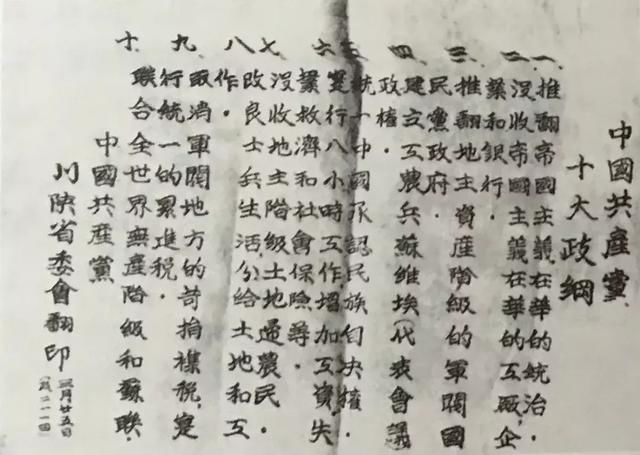 中國共產黨
十大政綱
一、推翻帝國主義在華的統治.
二、沒收帝國主義在華的工厰,企
業和銀行.
三、推翻地主.資產階級的軍閥國
民黨政府.
四、建立工農兵蘇維埃代表會議
政權.
五、統一中國承認民族自決權.
六、實行八小時工作,增加工資,失
業救濟和社會保險等.
七、沒收地主階級土地過農民.
八、改良士兵生活,分給土地和工
作.
九、取消軍閥地方的苛捐襍税,實
行統一的累進税.
十、聯合全世界無產階級和蘇聯.
中國共產黨
川陝省委會翻印
三月廿五日